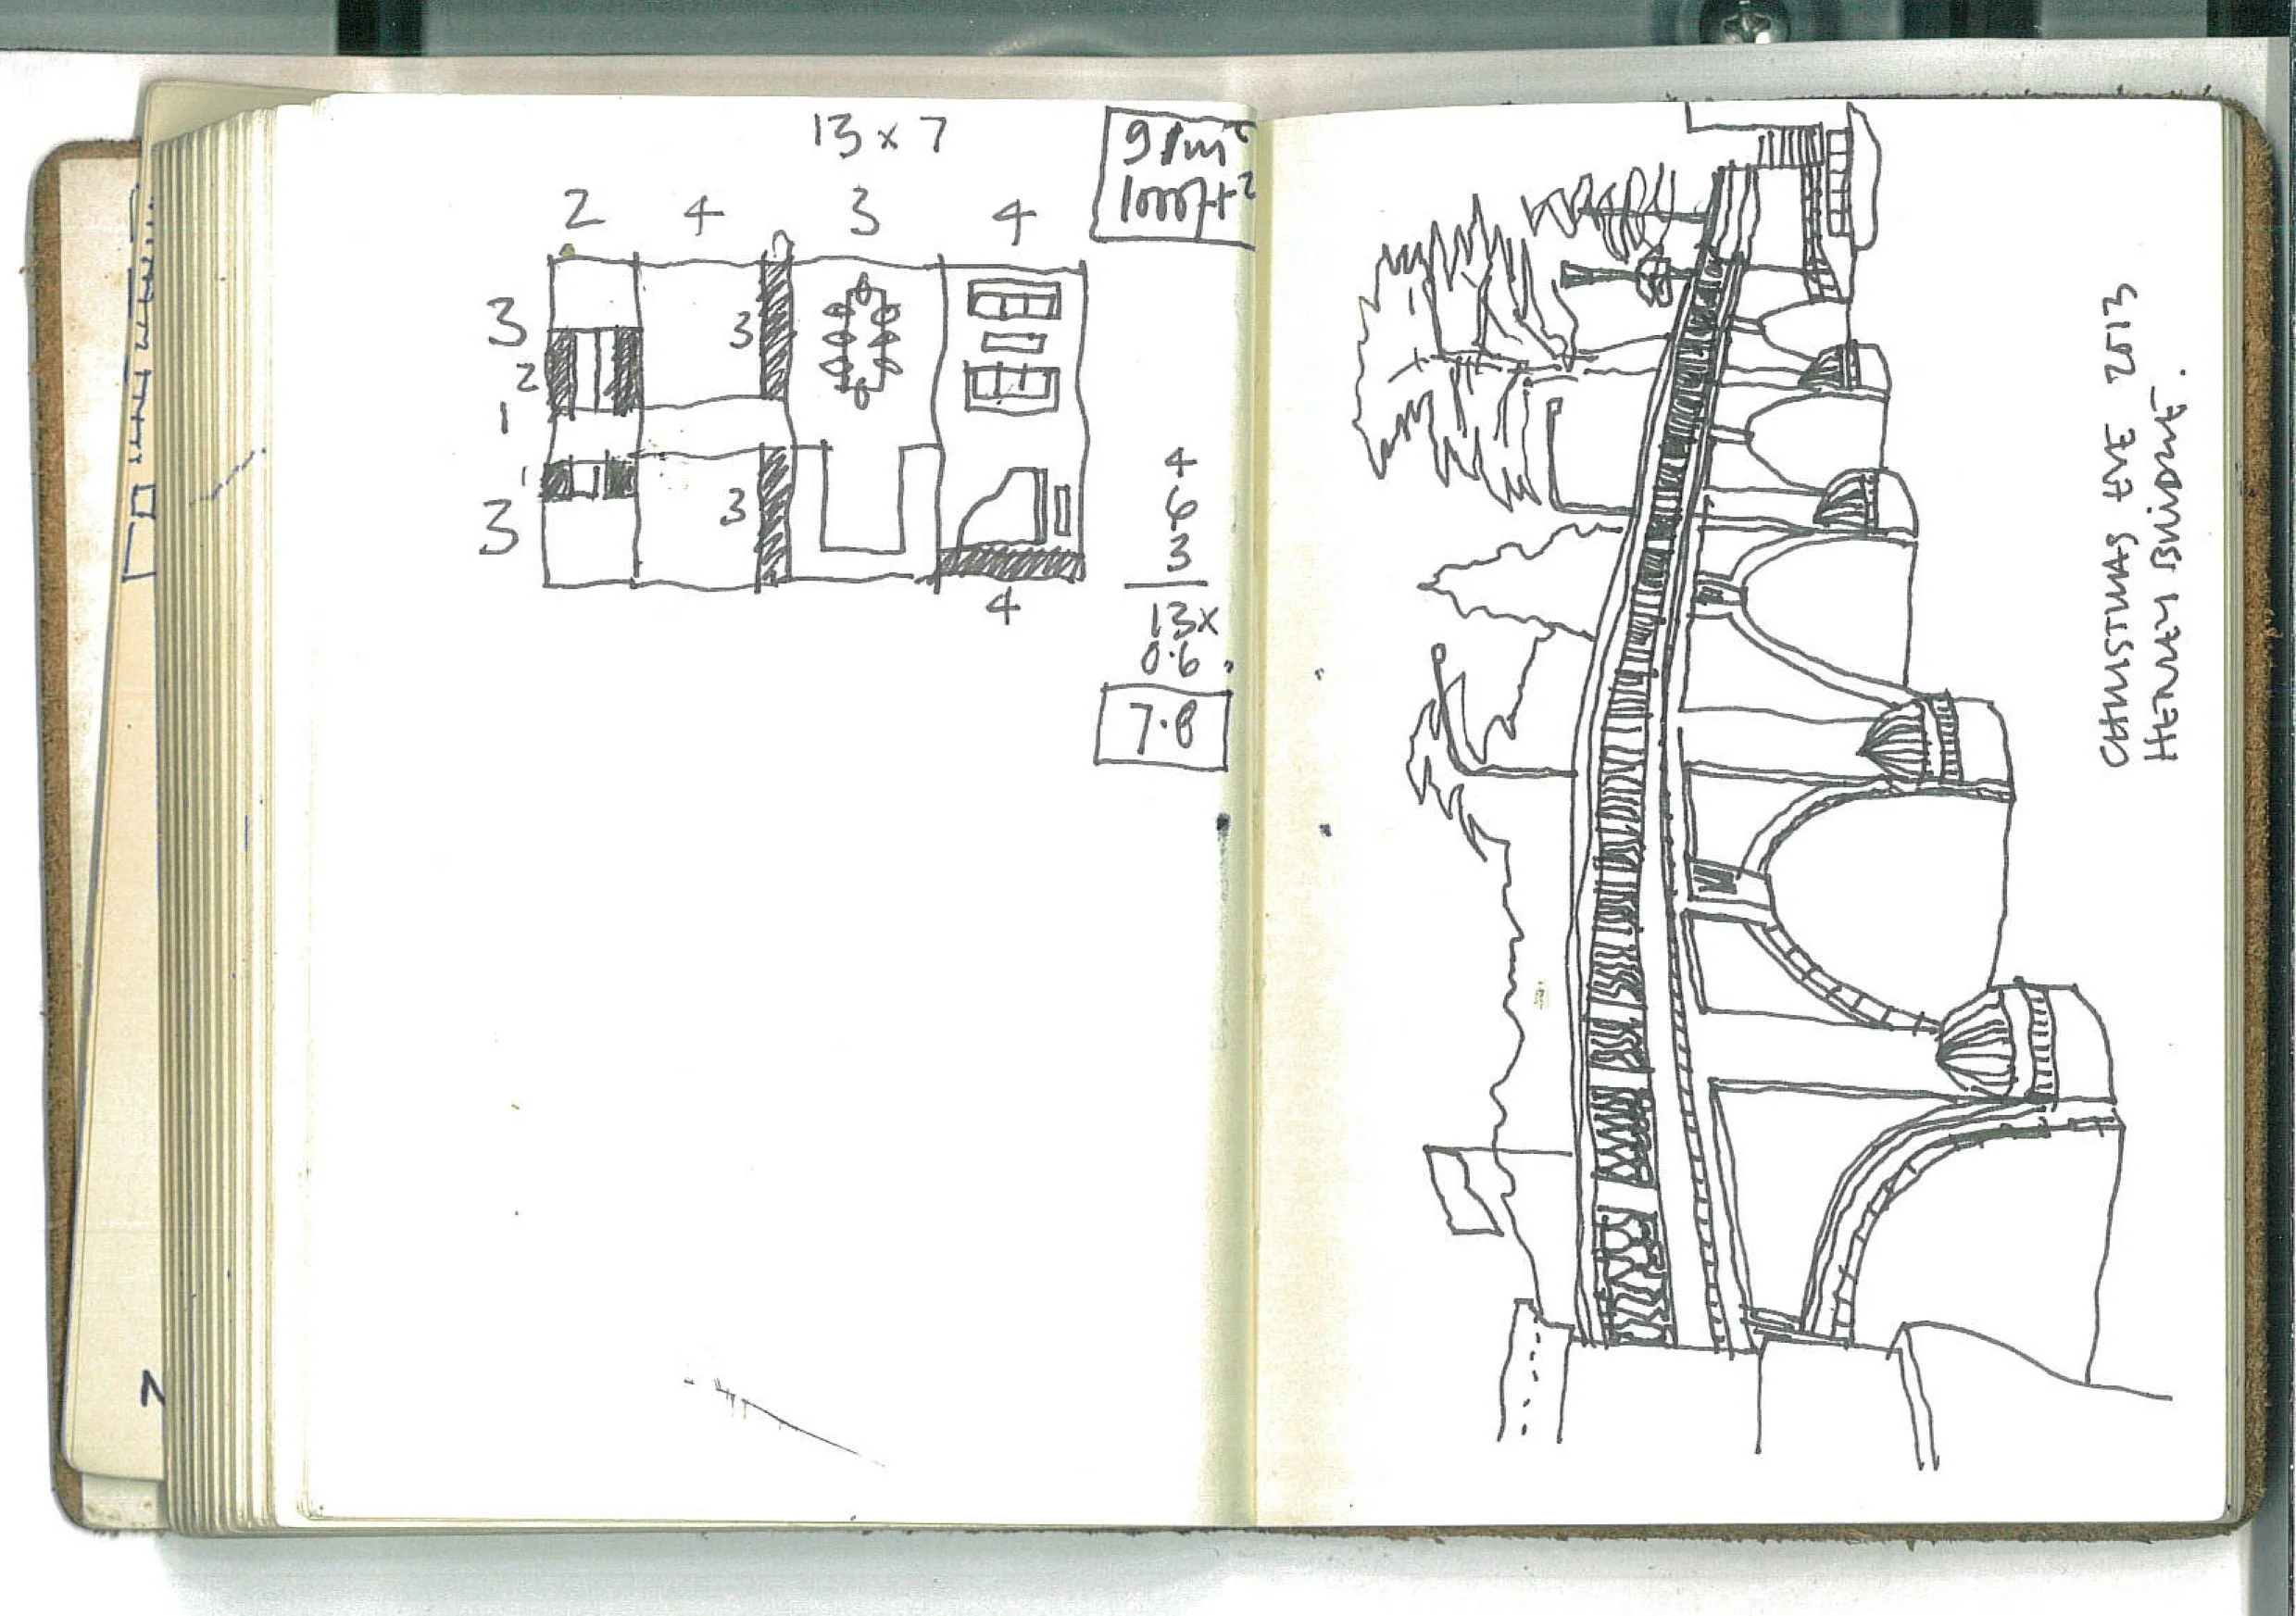 13 x 7
91m²
1000ft²
2 4 3 4
3
2
1
1
3
3
3
4
4
6
3
13x
0.6
7.8
CHRISTMAS EVE 2013
HENLEY BRIDGE.